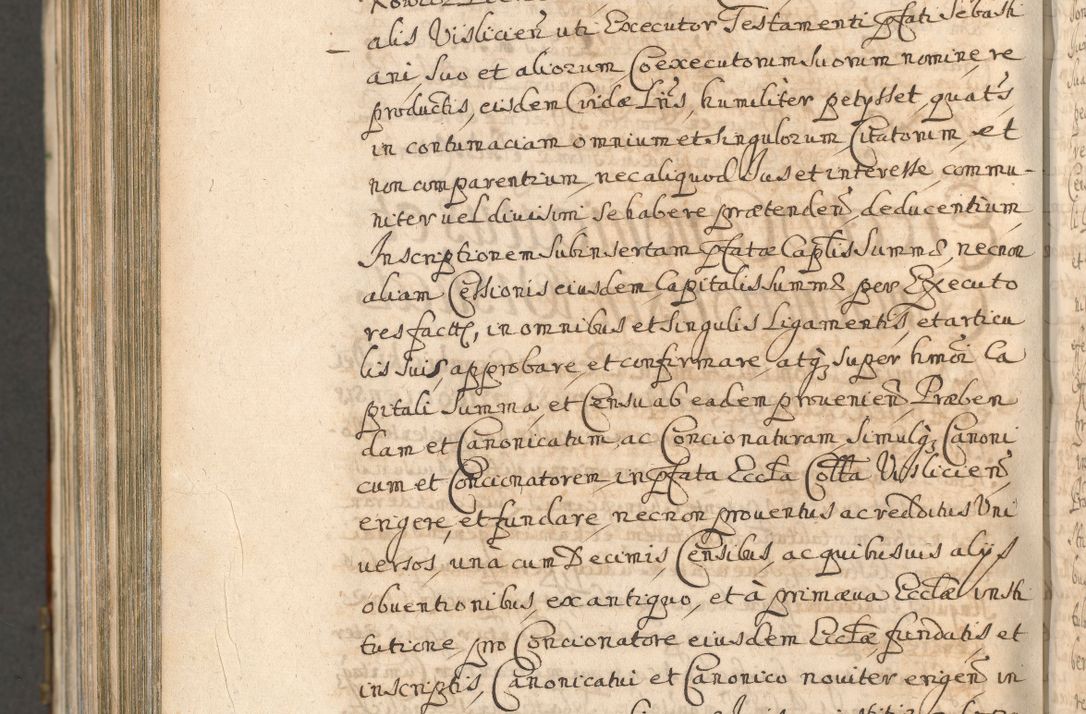 alis Visliciens uti Executor Testamenti pfati Sebasti
ani suo et aliorum Coexecutorum suorum nomine re
productis, eisdem Cridæ Lris, humiliter petysset, quats
in contumaciam omnium et Singulorum Citatorum et
non comparentium, nec aliquod Jus et interesse commu-
niter vel divisim se habere prætenden deducentium
Inscriptionem subinsertam pfatæ Caplis Summæ, necnon
aliam Cessionis eiusdem Capitalis Summæ per Executo
res factæ, in omnibus et Singulis Ligamentis, et articu
lis suis, approbare, et confirmare, atq super hmoi Ca
pitali Summa, et Censu ab eadem provenien Præben
dam et Canonicatum, ac Concionaturam, Simulq Canoni
cum et Concionatorem in pfata Eccla Colta Vislicien
erigere, et fundare, necnon proventus ac redditus Uni
versos, unà cum Decimis Censibus, ac quibusuis alijs
obventionibus, ex antiquo, et à primæva Ecclæ insti
tutione pro Concionatore eiusdem Ecclæ fundatis et
inscriptis, Canonicatui et Canonico noviter erigen in